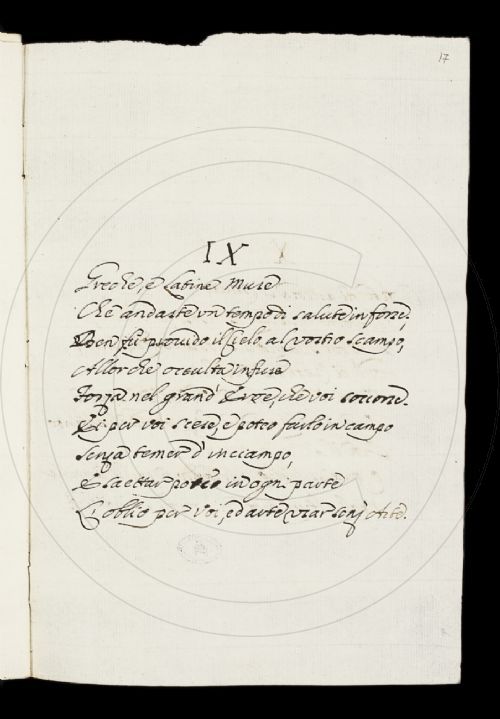 17
IX
Greche, e Latine Muse
Che andaste un tempo di salute in forse,
Ben fù provido il Cielo al vostro scampo,
Allor che occulta infuse
Forza nel grand' che voi soccorse.
Ei per voi scese, e poteo farlo in campo
Senza temer d'inciampo,
E saettar poteo in ogni parte
L'oblio per voi, ed arte usar senz' Arte.